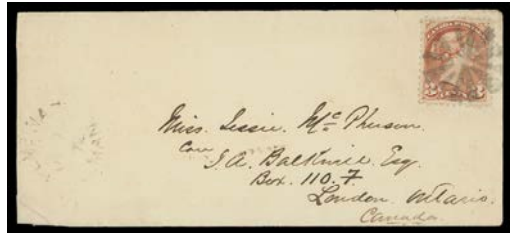 Miss. Jessie. McPherson.
Care
J. A. Balkwill. Esq.
Box. 110. F.
London. Ontario.
Canada.